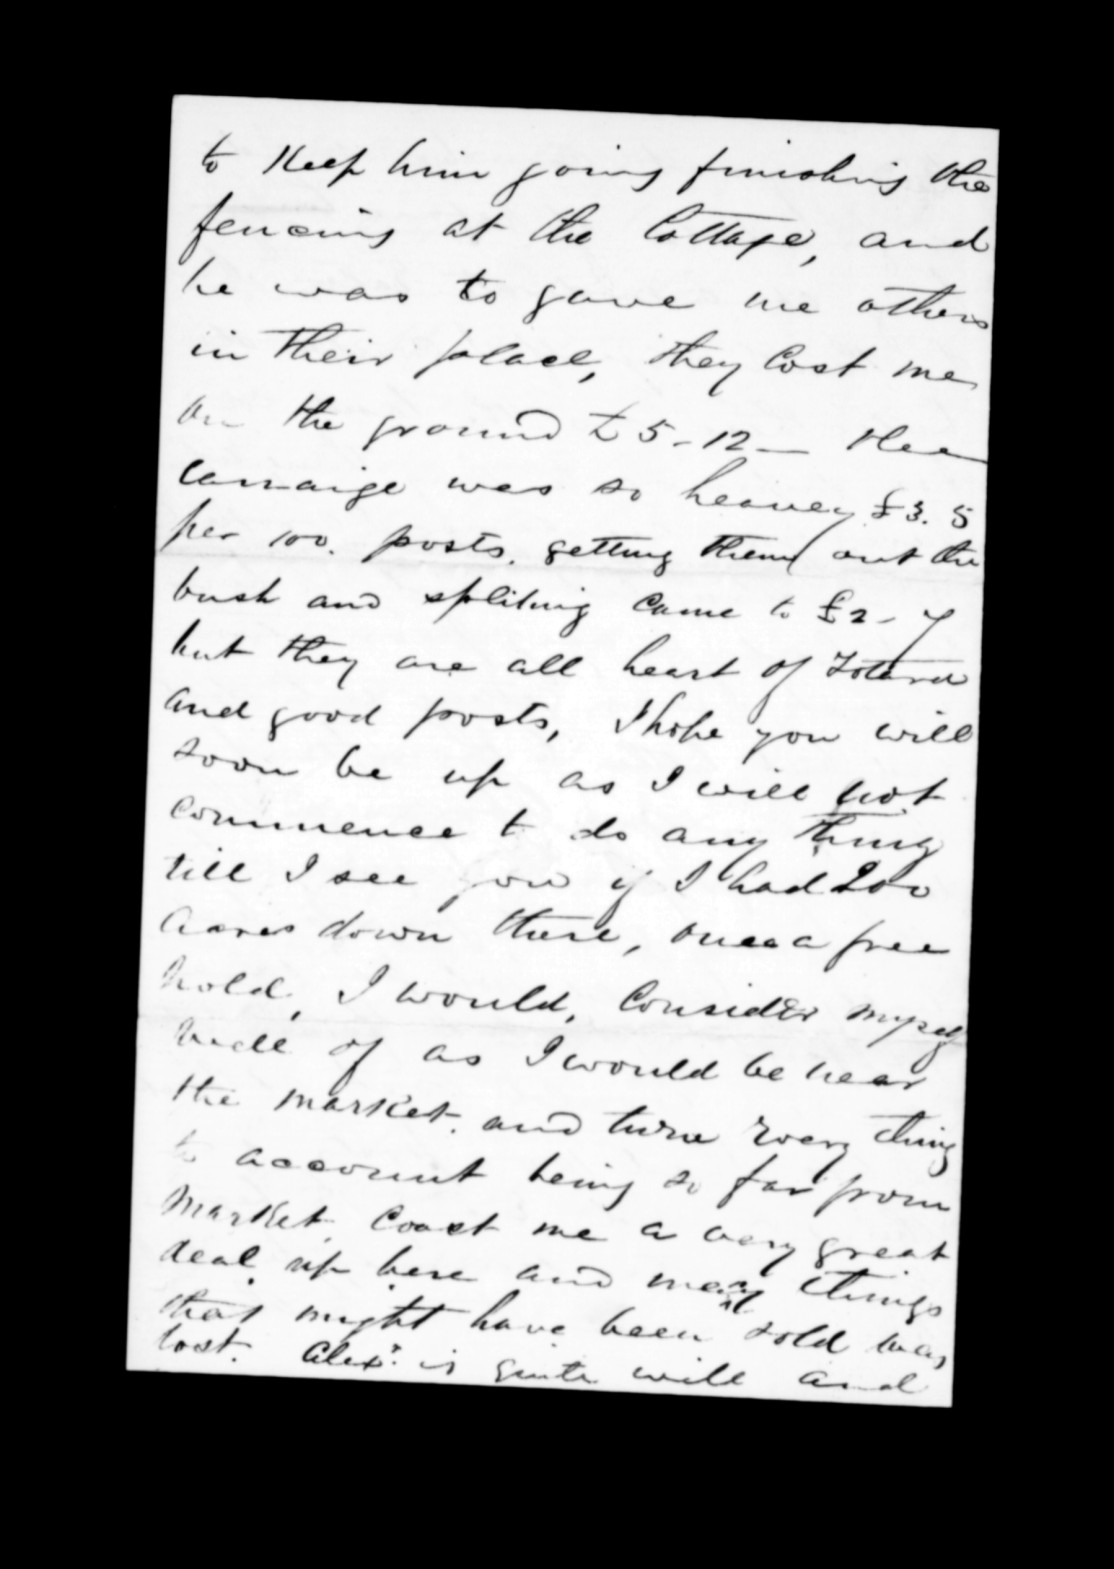 to Keep him going finishing the
fencing at the Cottage, and
he was to gave me others
in their place, they Cost me
on the ground £5-12— the
carraige was so heavey £3. 5
per 100. posts. getting them out the
bush and spliting came to £2-7
but they are all heart of Totara
and good posts, I hope you will
soon be up as I will not
commence to do any thing
till I see you if I had 200
acres down there, once a free
hold, I would, Consider myself
well of as I would be near
the market. and turn Every thing
to account being so far from
Market. Coast me a very great
deal up here and many things
that might have been sold was
lost. Alexr. is quite will and